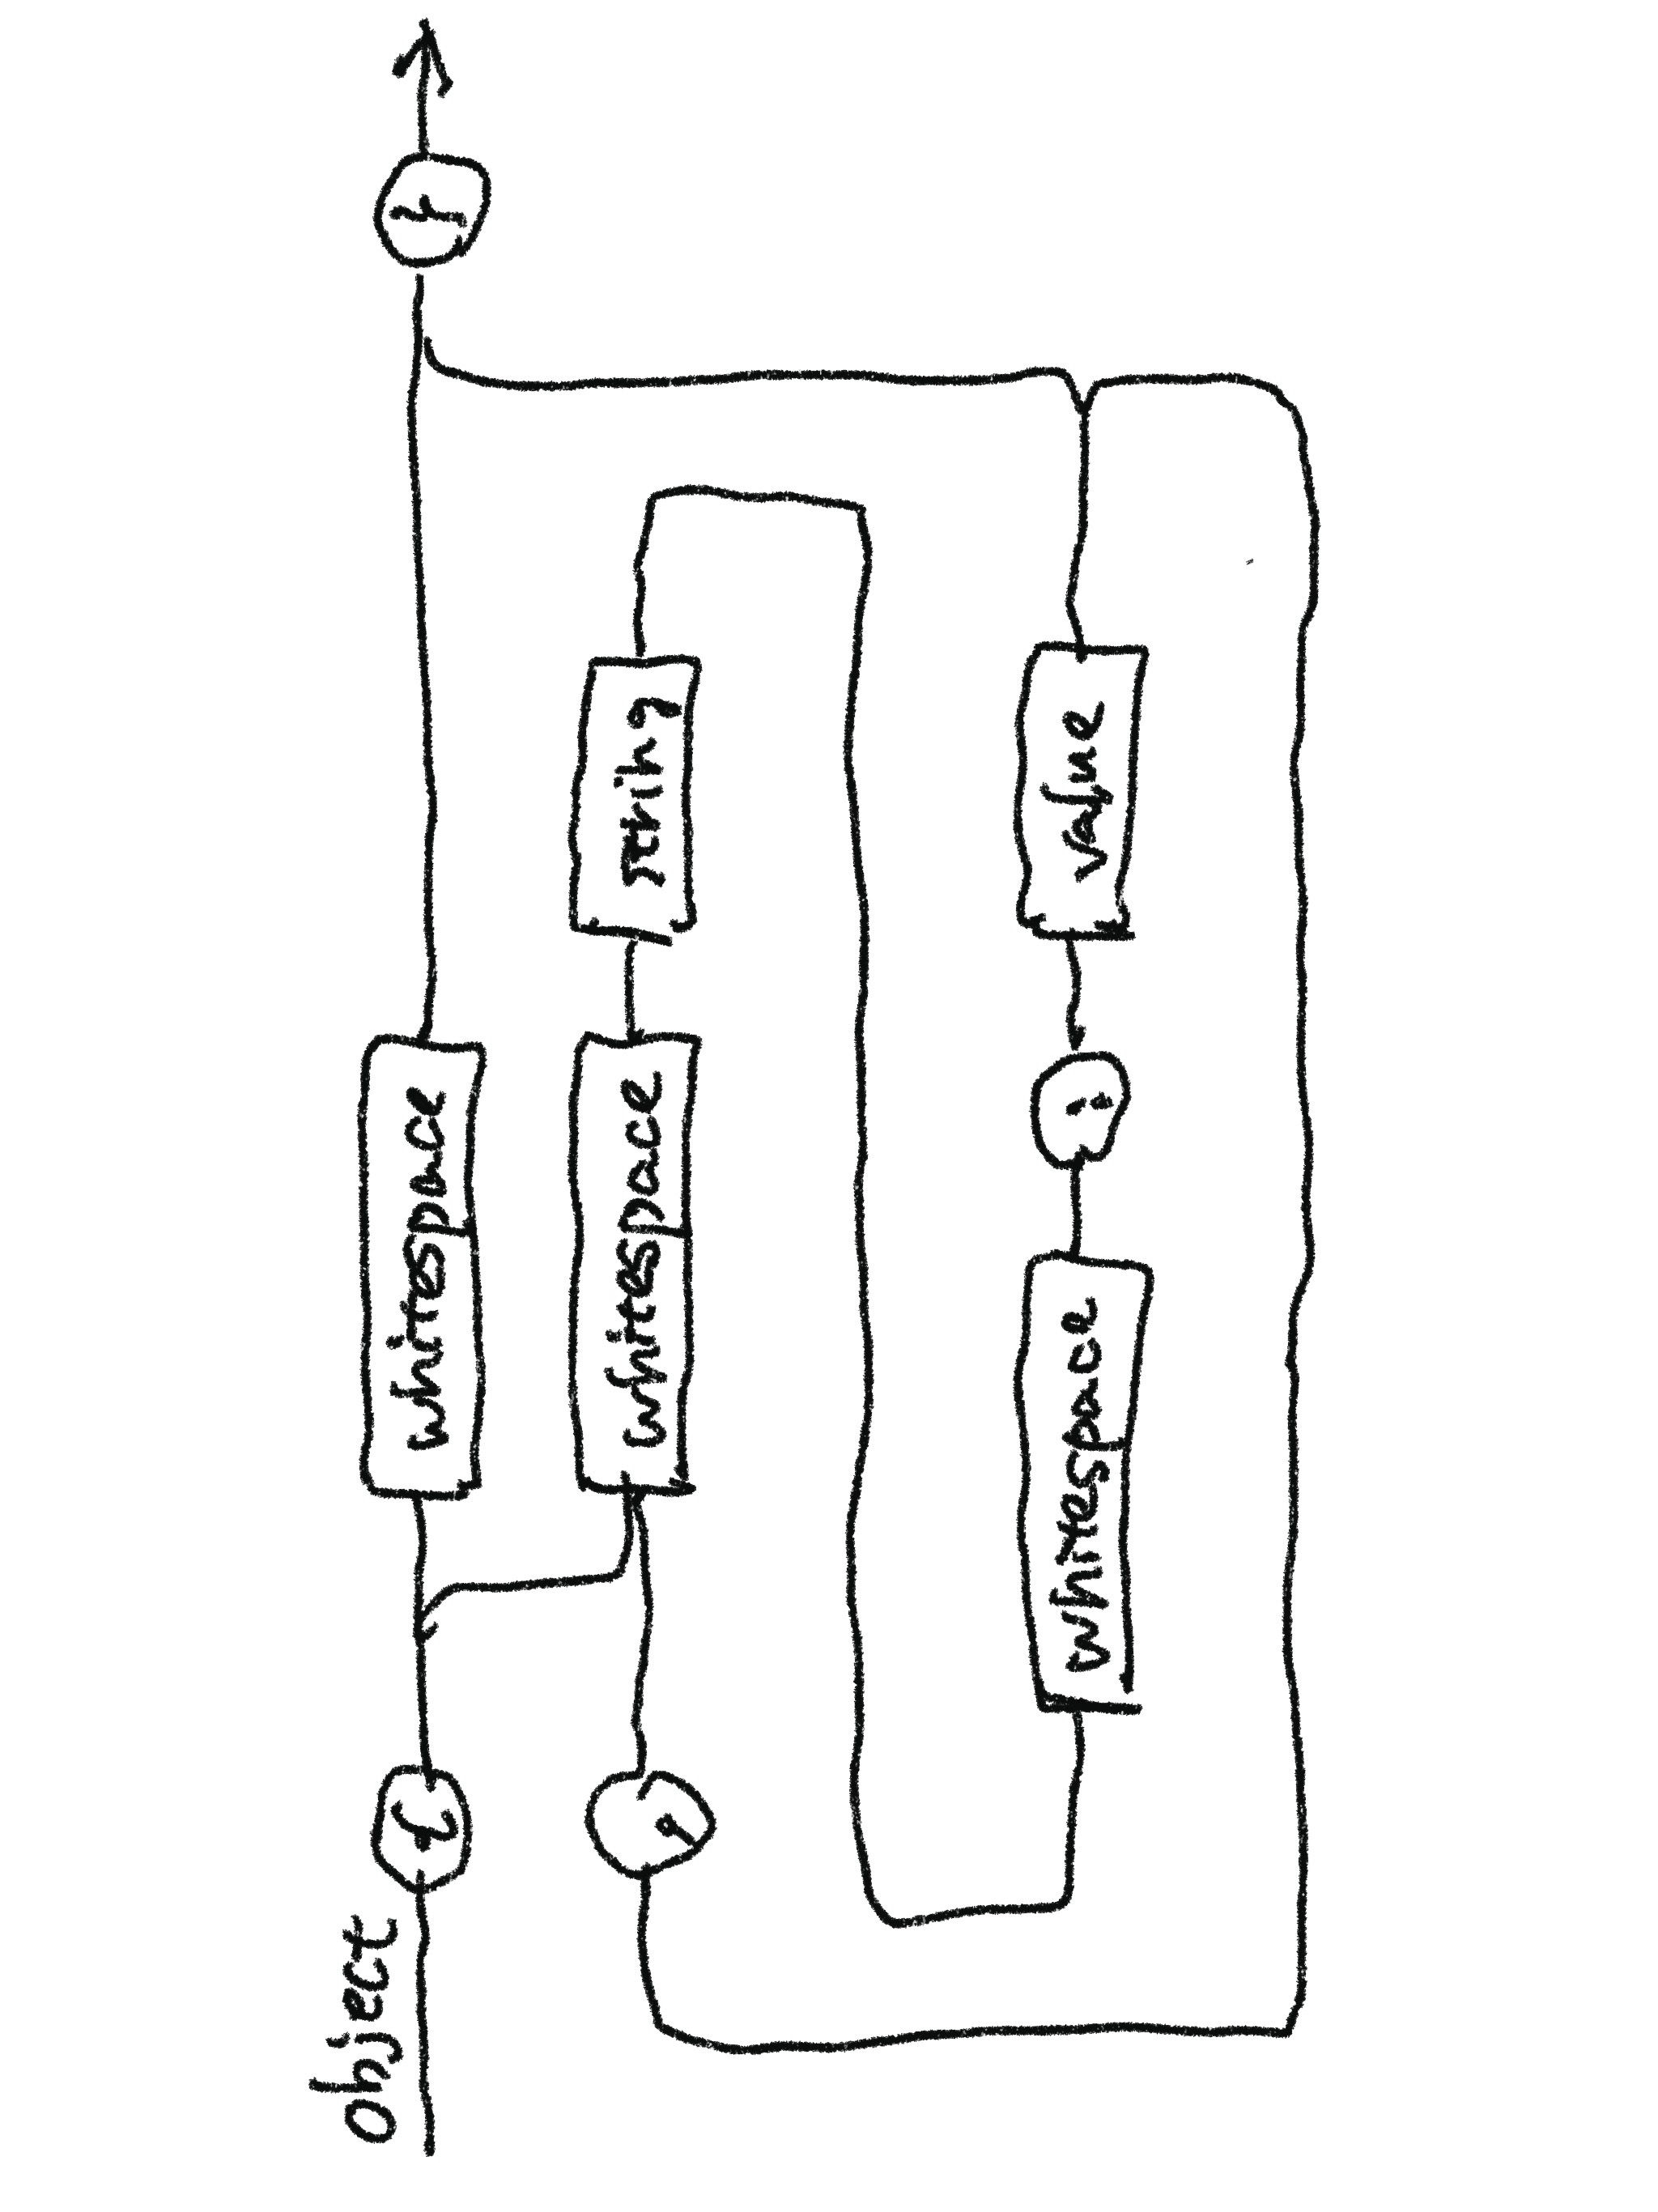 object
{ whitespace }
, whitespace string
whitespace : value